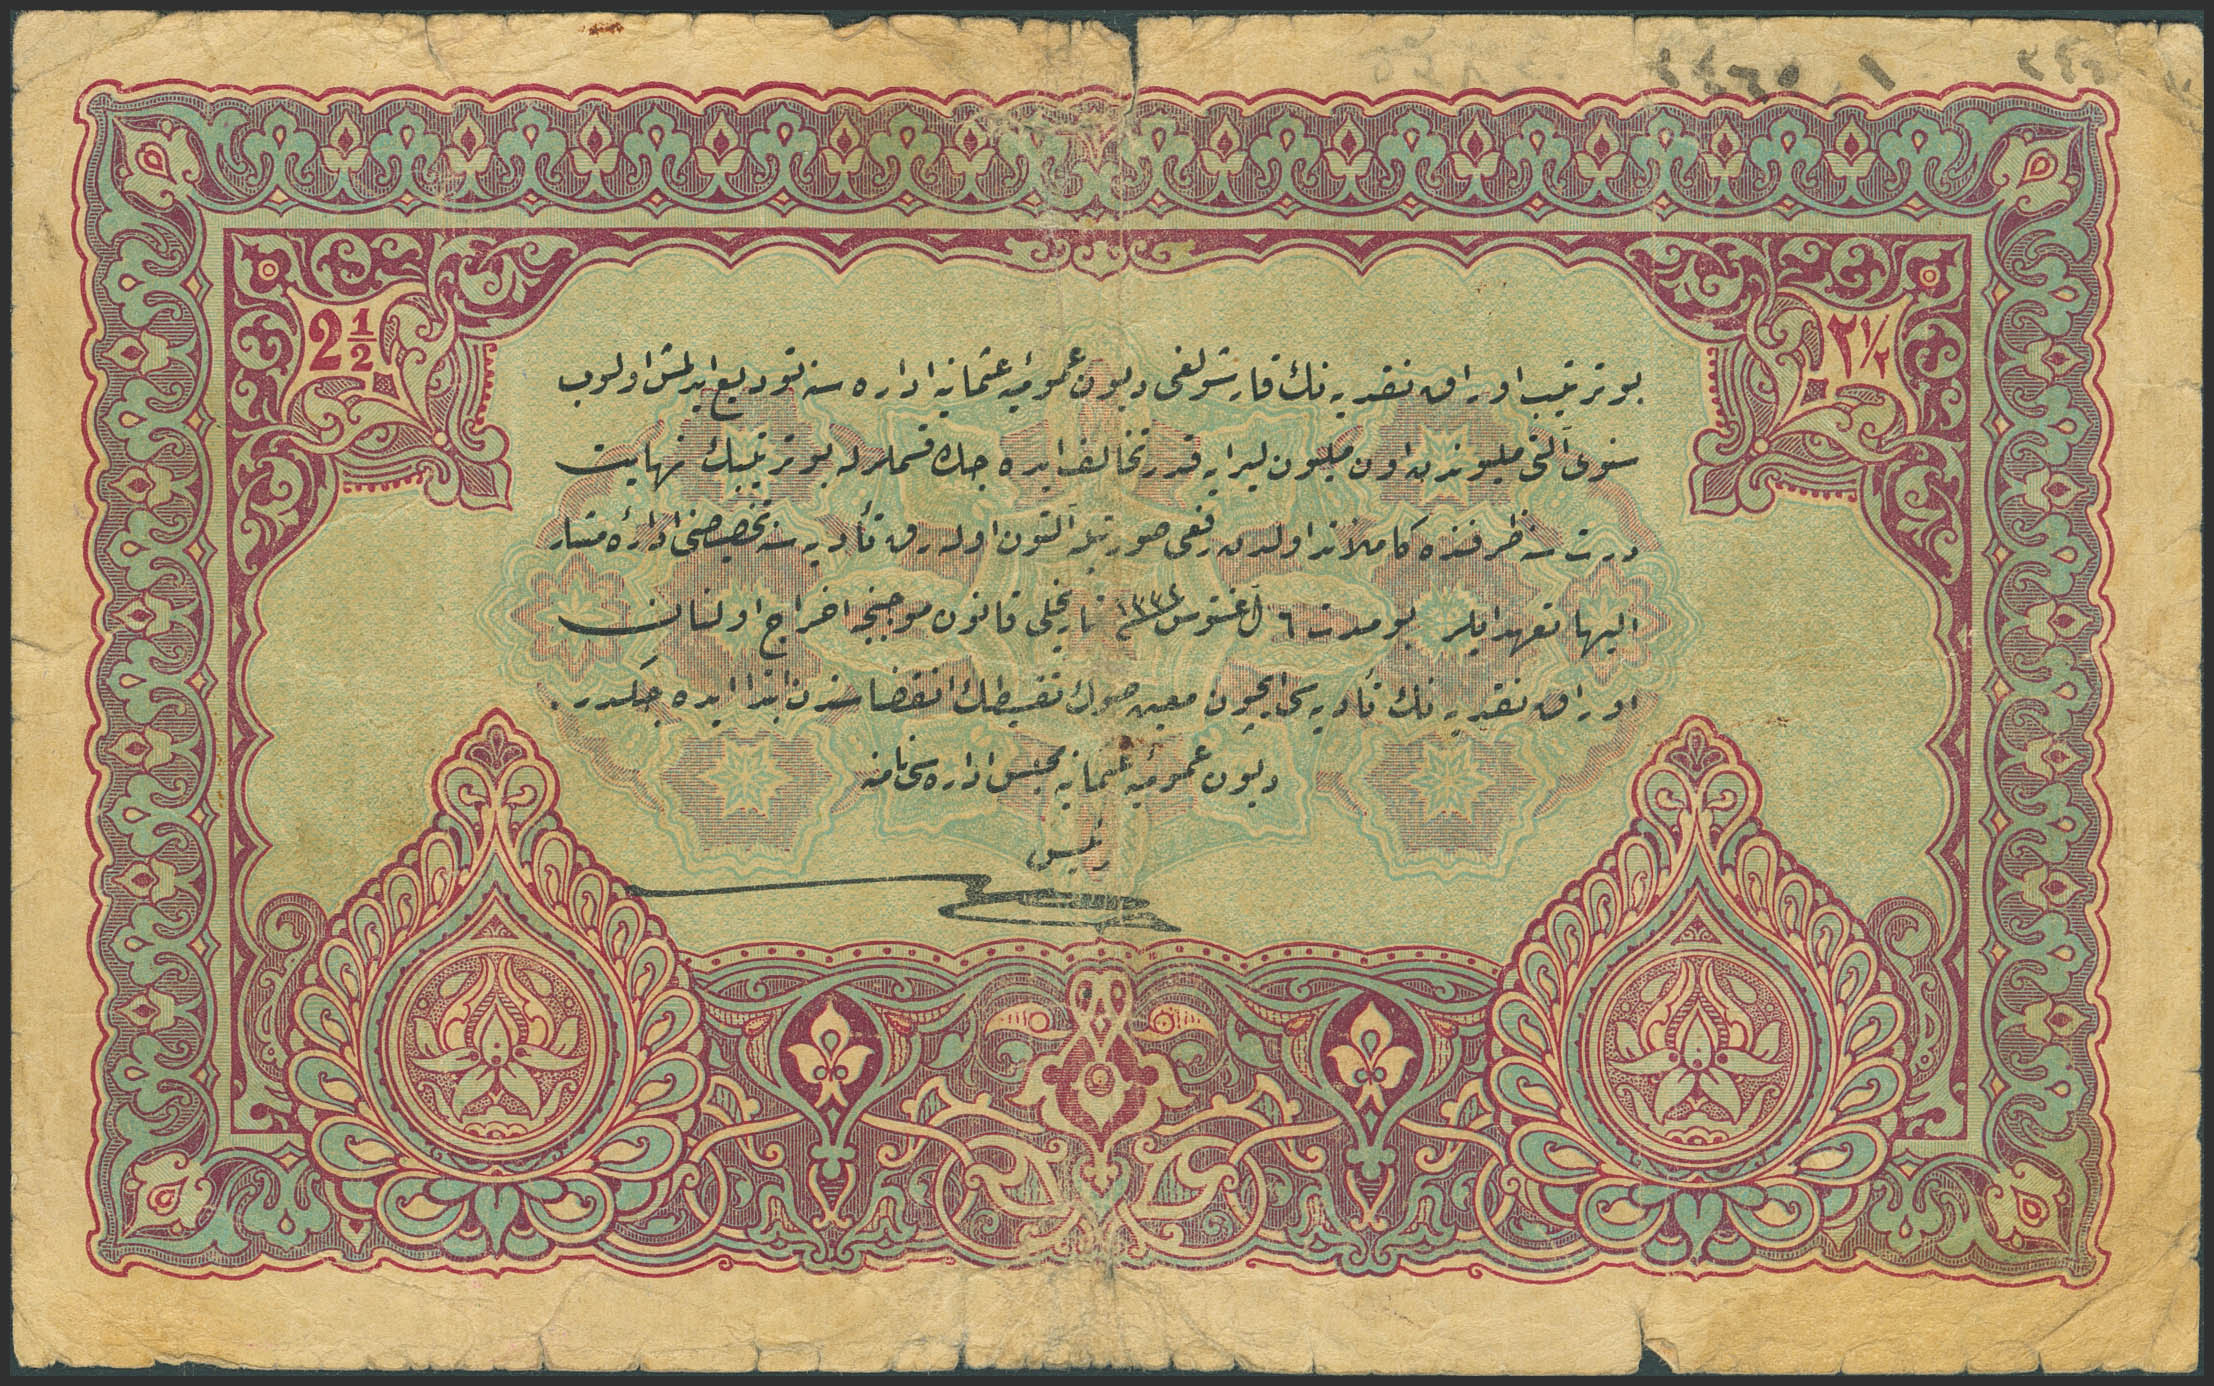 2 1/2
٢ ١/٢
بو ترتیب اوراق نقدیه نك قارشولغی دیون عمومیهٔ عثمانیه اداره سنه تودیع ایدلمش اولوب
سنوی آلتی ملیوندن اون ملیون لیرایه قدر تخالف ایده جك قسملرله بو ترتیبك نهایت
درت سنه ظرفنده كاملاً آلتون اوله رق تأدیه سنه تخصیصنی ادارهٔ مشار
الیها تعهد ایلر بو مدت ٦ آغستوس ١٣٣٢ تاریخلی قانون موجبنجه اخراج اولنان
اوراق نقدیه نك تأدیه سی ایچون معین صوك تقسیطك انقضاسندن ابتدا ایده جكدر.
دیون عمومیهٔ عثمانیه مجلس اداره سی نامنه
رئیس